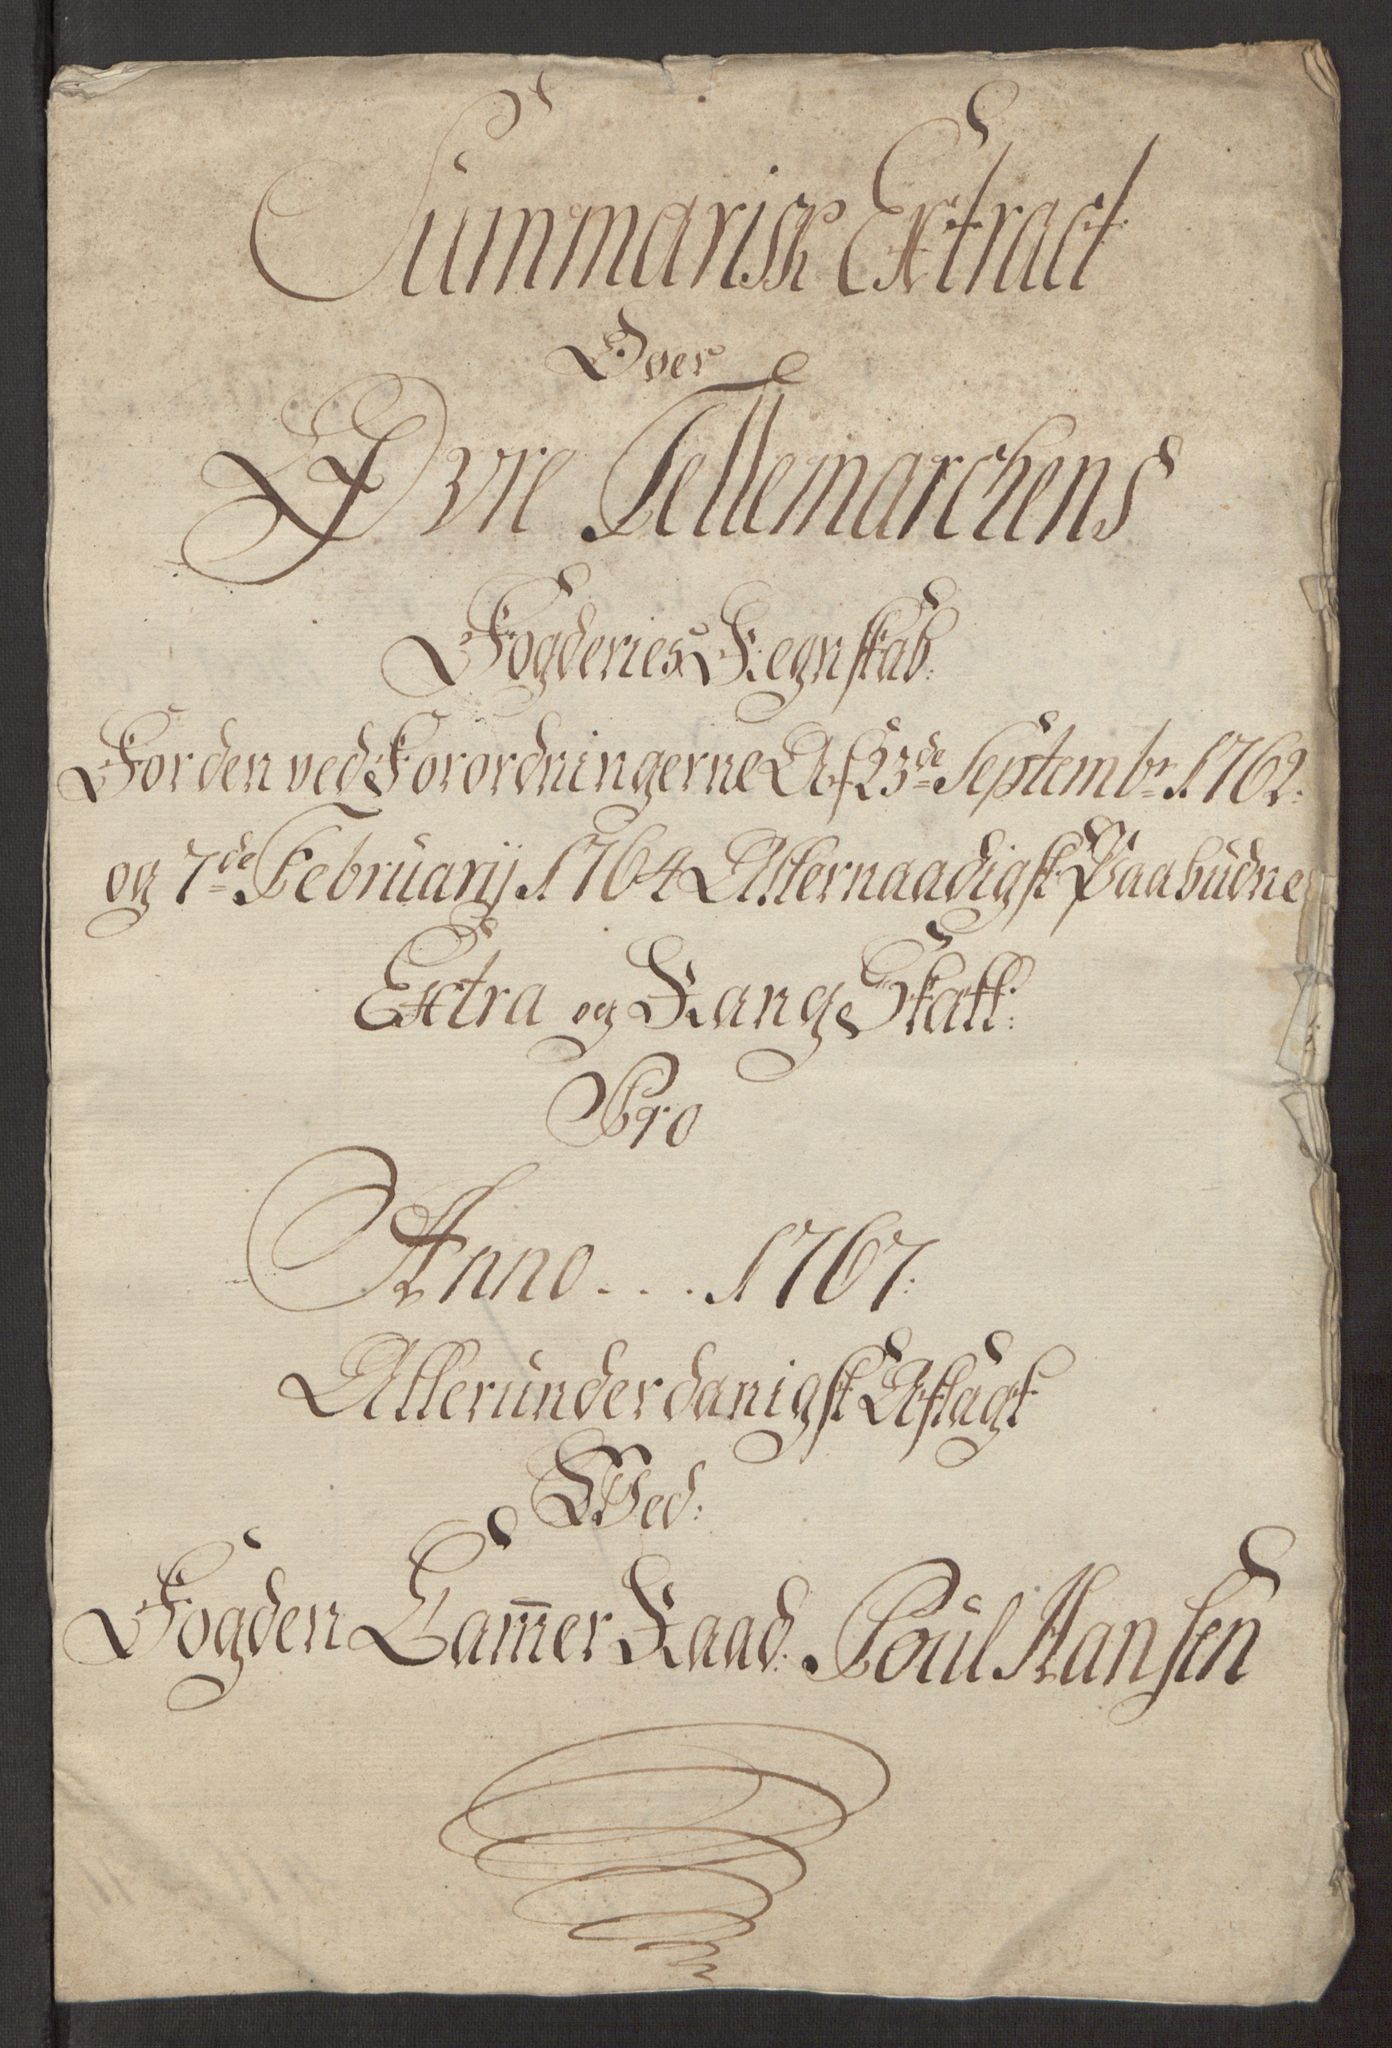 Summarisk Extract
Over
Øvre Tellemarchens
Fogderies Regnskab:
For den ved Forordningerne Af 23de Septembr 1762:
og 7de Februarij 1764 Allernaadigst Paabudne
Extra og Rang Skatt:
Pro
Anno . . . 1767:
Allerunderdanigst Aflagt
Ved:
Fogden Cam̄er Raad: Poul Hansen